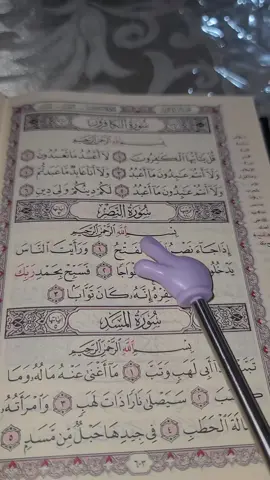 سُورَةُ الْكَافِرُونَ
بِسْمِ اللَّهِ الرَّحْمَٰنِ الرَّحِيمِ
قُلْ يَا أَيُّهَا الْكَافِرُونَ ١ لَا أَعْبُدُ مَا تَعْبُدُونَ ٢
وَلَا أَنْتُمْ عَابِدُونَ مَا أَعْبُدُ ٣ وَلَا أَنَا عَابِدٌ مَا عَبَدْتُمْ ٤
وَلَا أَنْتُمْ عَابِدُونَ مَا أَعْبُدُ ٥ لَكُمْ دِينُكُمْ وَلِيَ دِينِ ٦
سُورَةُ النَّصْرِ
بِسْمِ اللَّهِ الرَّحْمَٰنِ الرَّحِيمِ
إِذَا جَاءَ نَصْرُ وَالْفَتْحُ ١ وَرَأَيْتَ النَّاسَ
يَدْخُلُونَ ٢ فَسَبِّحْ بِحَمْدِ رَبِّكَ
إِنَّهُ كَانَ تَوَّابًا ٣
سُورَةُ الْمَسَدِ
بِسْمِ اللَّهِ الرَّحْمَٰنِ الرَّحِيمِ
تَبَّتْ يَدَا أَبِي لَهَبٍ وَتَبَّ ١ مَا أَغْنَىٰ عَنْهُ مَالُهُ وَمَا
٢ سَيَصْلَىٰ نَارًا ذَاتَ لَهَبٍ ٣ وَامْرَأَتُهُ
حَمَّالَةَ الْحَطَبِ ٤ فِي جِيدِهَا حَبْلٌ مِنْ مَسَدٍ ٥
٦٠٣